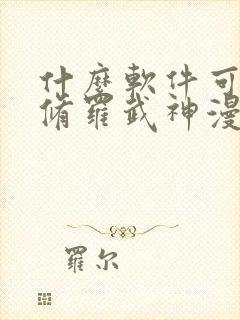 什麼軟件可
脩羅武神漫
羅尔